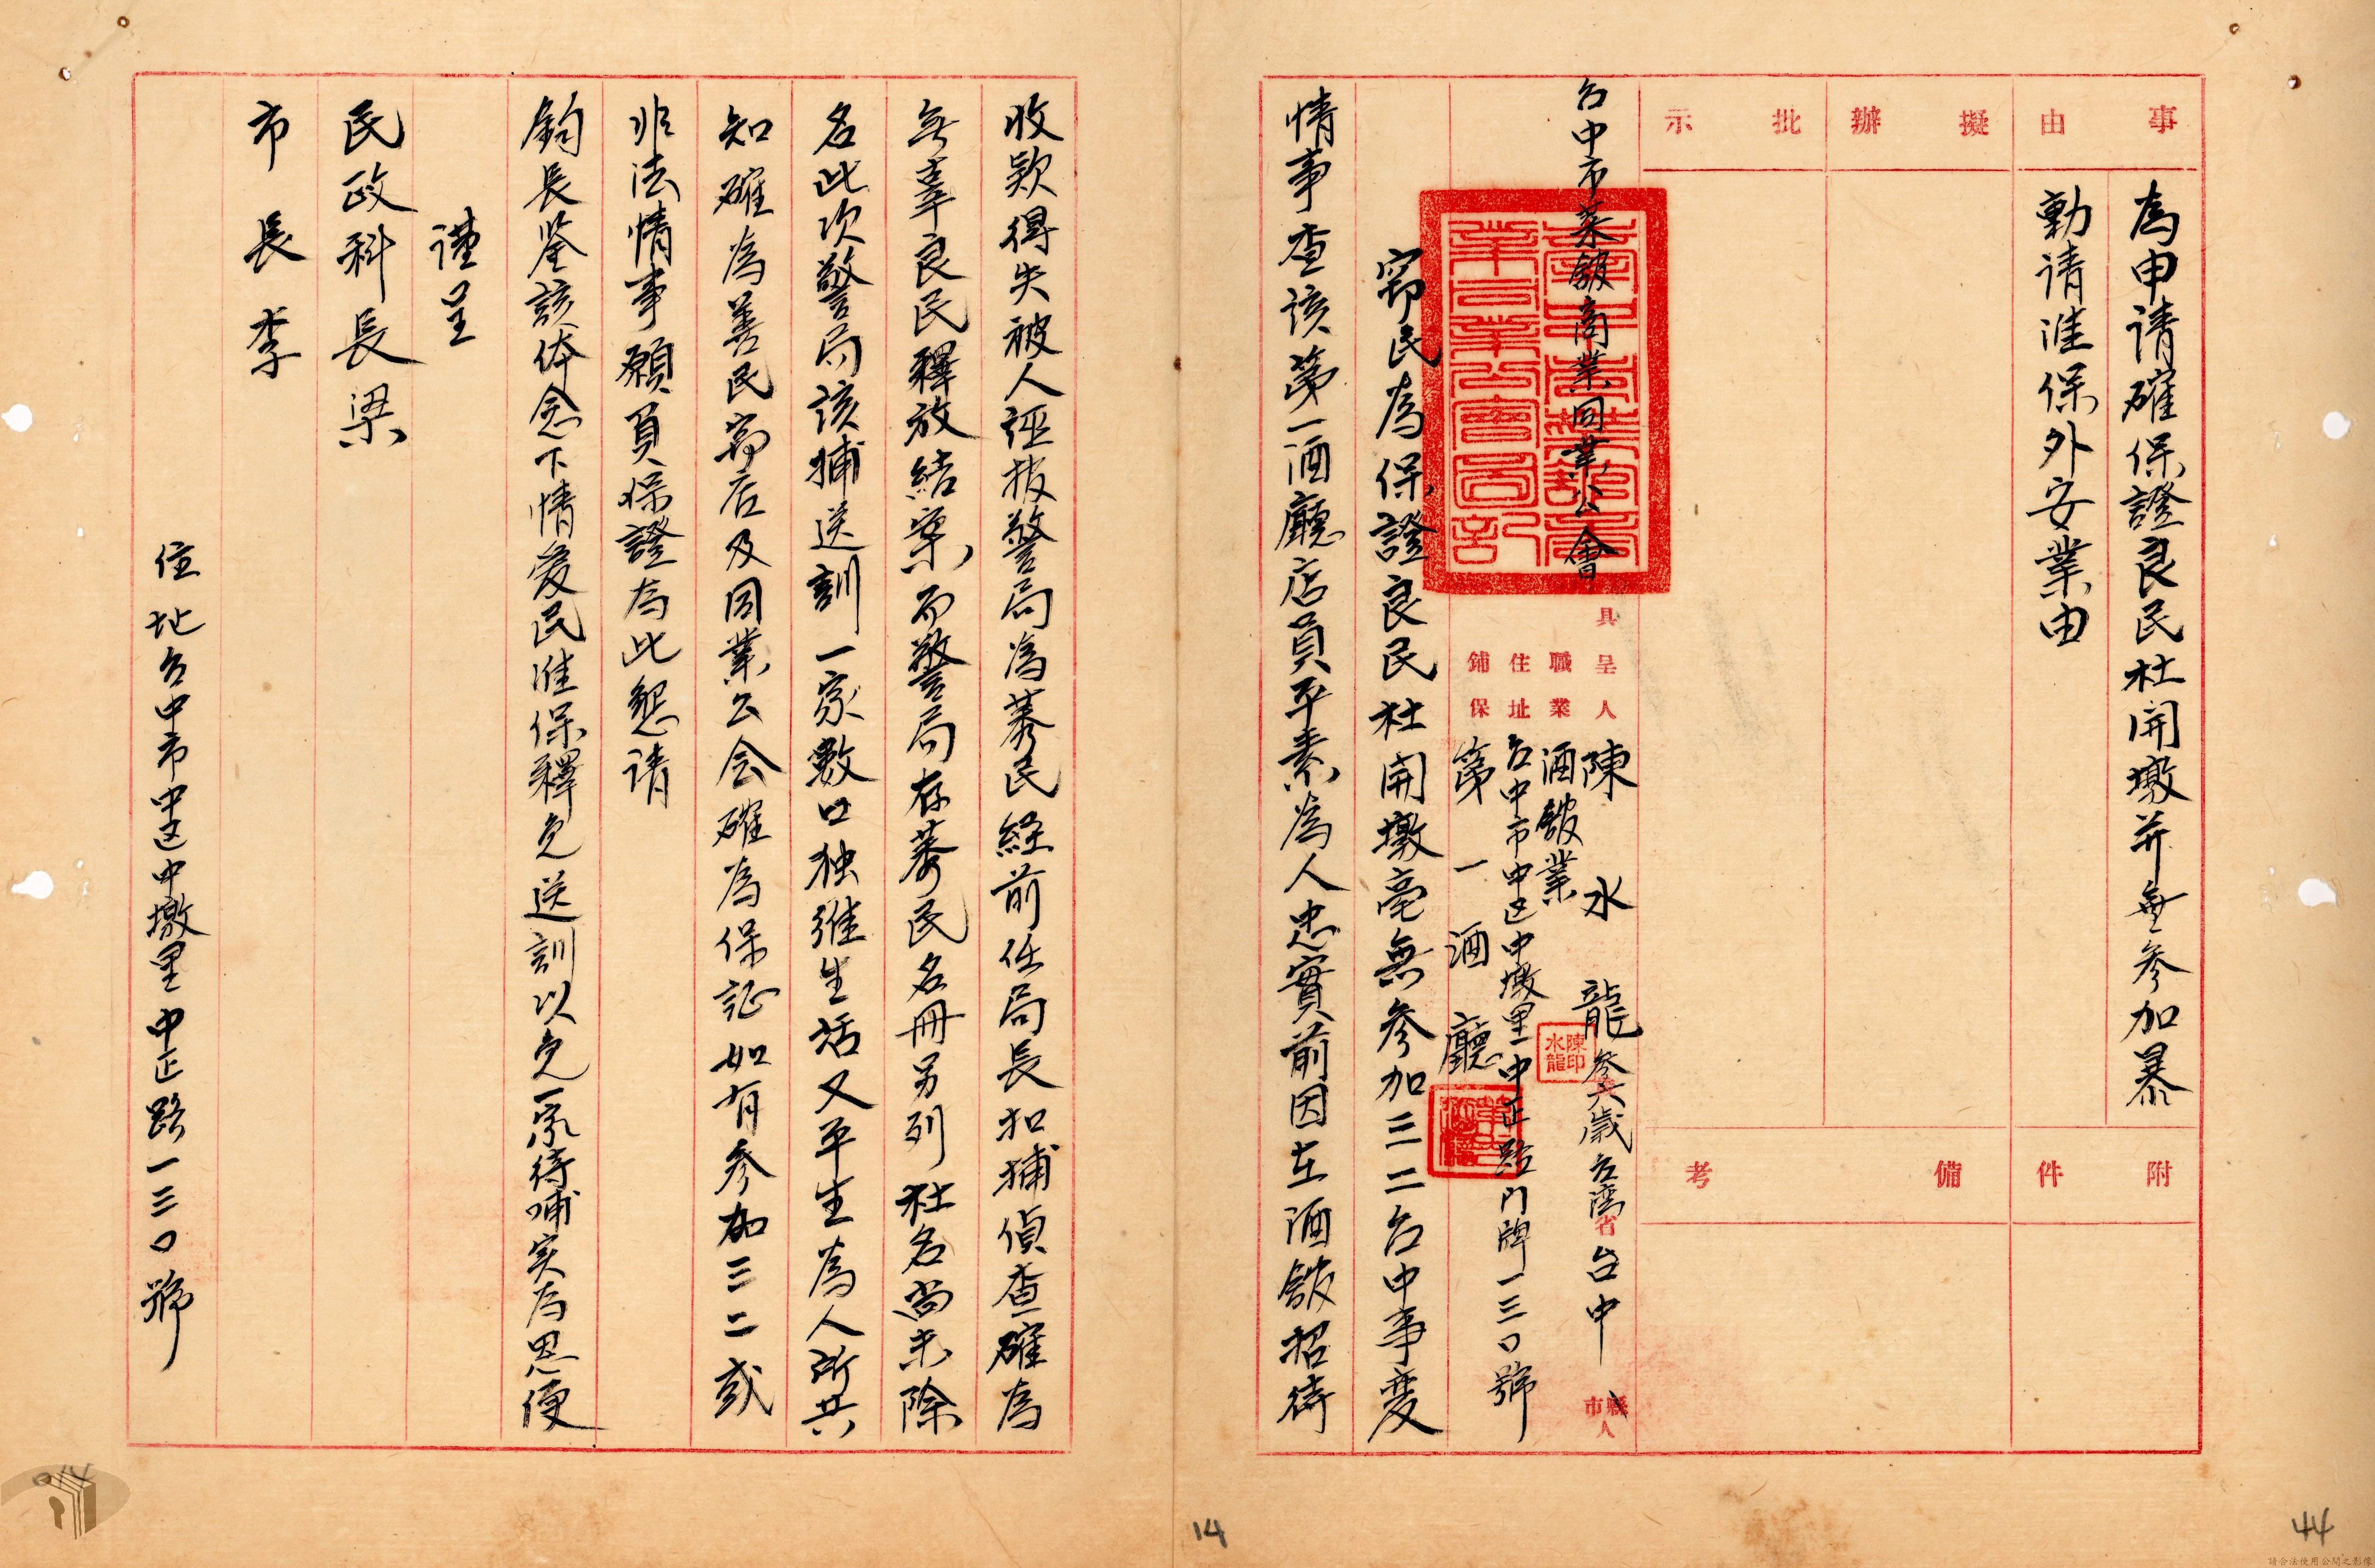 事由
為申請確保證良民杜開墩并無參加暴
動請准保外安業由
擬辦
批示
附件
備考
台中市菜館商業同業公會
具呈人 陳水龍 參六歲 台湾省台中縣市人
職業 酒館業
住址 台中市中区中墩里中正路门牌一三〇號
鋪保 第一酒廳
陳水龍印
竊民為保證良民杜開墩毫無參加三二台中事変
情事查该第一酒廳店員平素為人忠實前因在酒館招待
收款得失被人誣报警局為莠民経前任局長扣捕偵查確為
無辜良民釋放結案而警局存莠民名冊另列杜名尚未除
名此次警局该捕送訓一家數口独維生活又平生為人所共
知確為善民窃店及同業公会確為保証如有參加三二或
非法情事願負保證為此懇请
鈞長鉴該体念下情爱民准保釋免送訓以免一家待哺实為恩便
谨呈
民政科長梁
市長李
住址台中市中区中墩里中正路一三〇號
14
44
請合法使用公開之影像